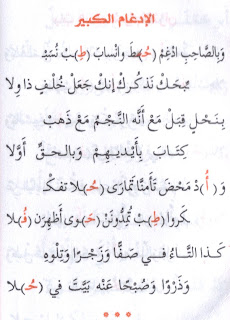 الإدغام الكبير
وَبِالصَّاحِبِ ادْغِمْ (حُـ)ـطْ وَانْسابَ (طِـ)ـبْ نُسَبْـ
ـبِحَكْ نَذكُرَكْ إِنكْ جَعَلْ خُلْفِ ذا وِلا
بِنَحْلٍ قِبَلْ مَعْ أَنَّه النَّجْـمُ مَعْ ذَهَبْ
كِتَـابَ بِأَيْدِيـهِـمْ وَبـالـحَقِّ أَوَّلا
وَ (أُ)دْ مَحْضَ تَأْمَنَّا تَمَارَى (حُـ)ـلا تفكْـ
ـكَروا (طِـ)ـبْ تُمِدُّونَنْ (حَـ)ـوى أَظهِرَنْ (فُـ)ـلا
كَـذا التَّـاءُ فـِـي صَفًّـا وَزَجْـرًا وَتِلْوِهِ
وَذَرْوًا وَصُبْحًـا عَنْه بَيَّتَ في (حُـ)ـلا